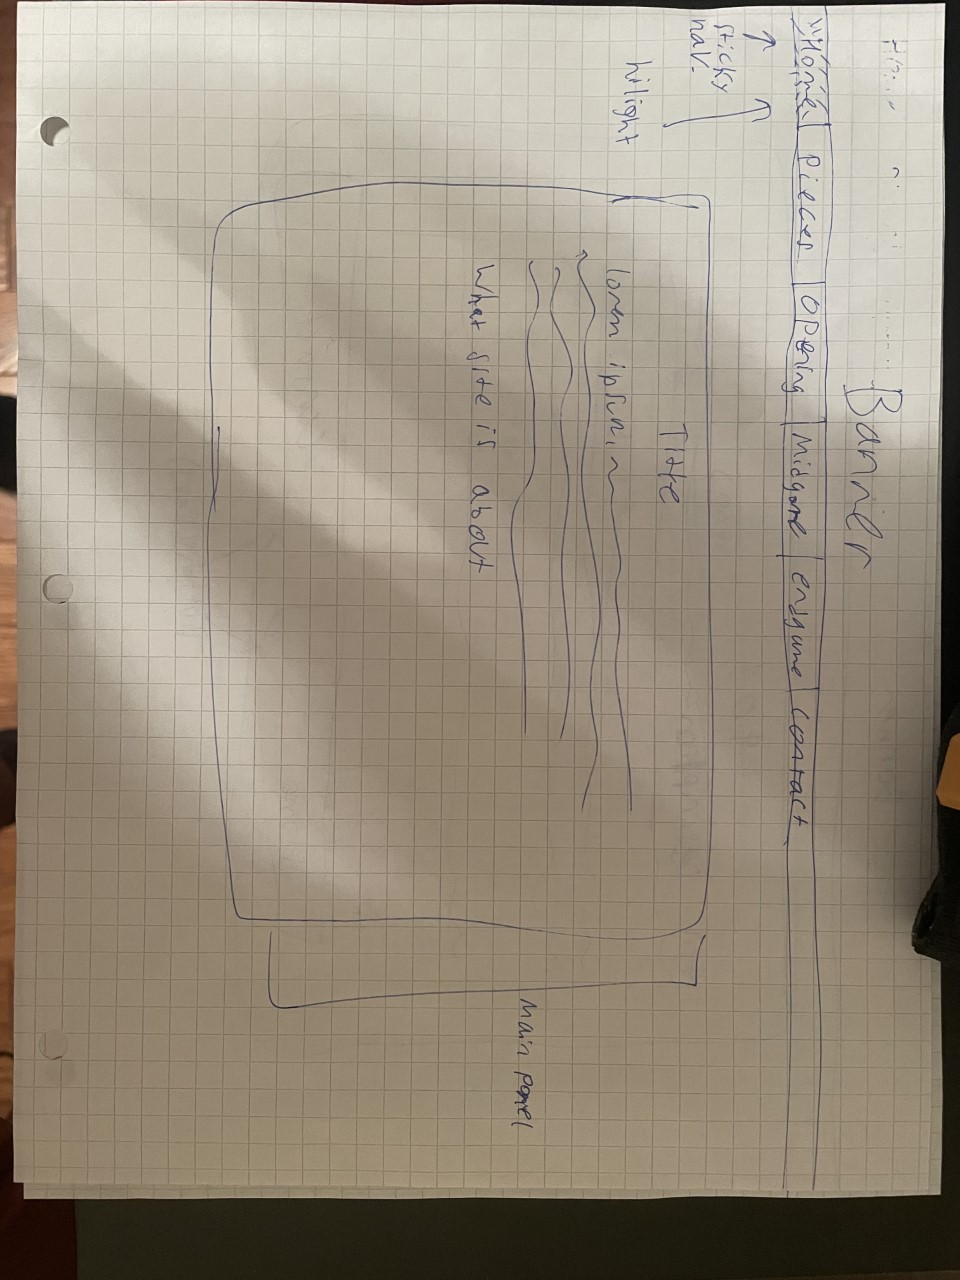 Banner
Home Pieces Opening Midgame endgame contact
sticky
nav.
hilight
Title
lorem ipsum
What site is about
main panel